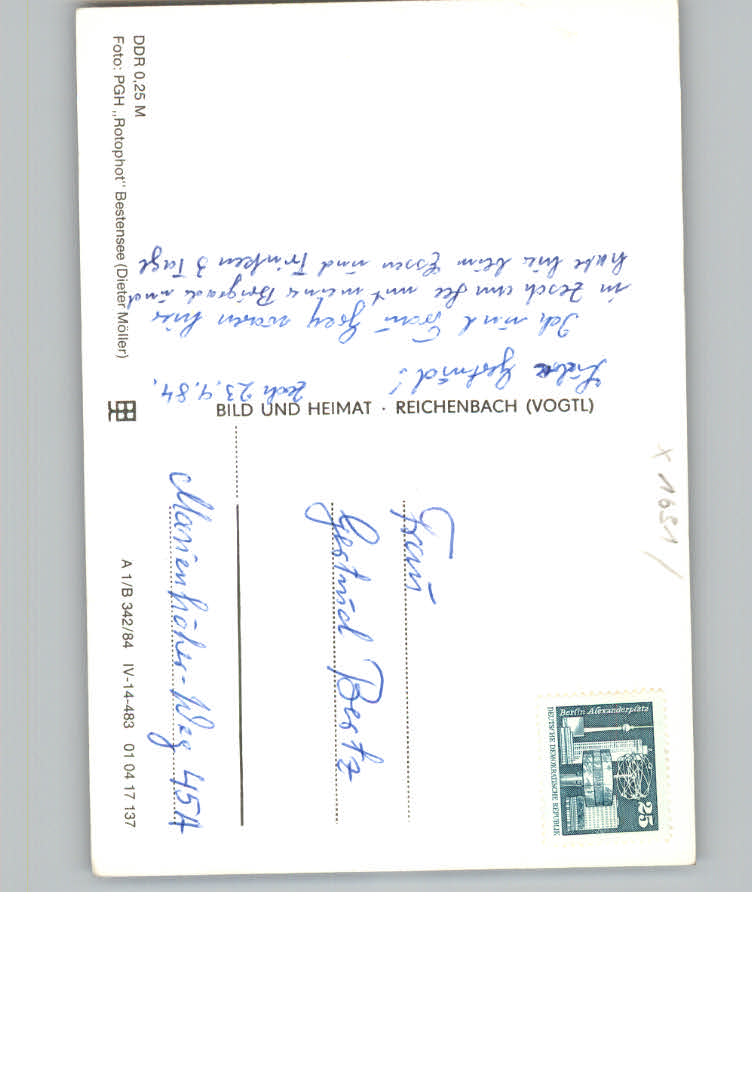 DDR 0,25 M
Foto: PGH „Rotophot" Bestensee (Dieter Möller)
Zesch 23.4.84,
Liebe Gertrud!
Ich und Frau waren hier
in Zesch am See mit meine Brigade und
habe hier beim Essen und Trinken 3 Tage
BILD UND HEIMAT · REICHENBACH (VOGTL)
A 1/B 342/84 IV-14-483 01 04 17 137
Frau
Gertrud Bertz
Marienhöher-Weg 45A
Berlin Alexanderplatz
25
DEUTSCHE DEMOKRATISCHE REPUBLIK
X 1651 /